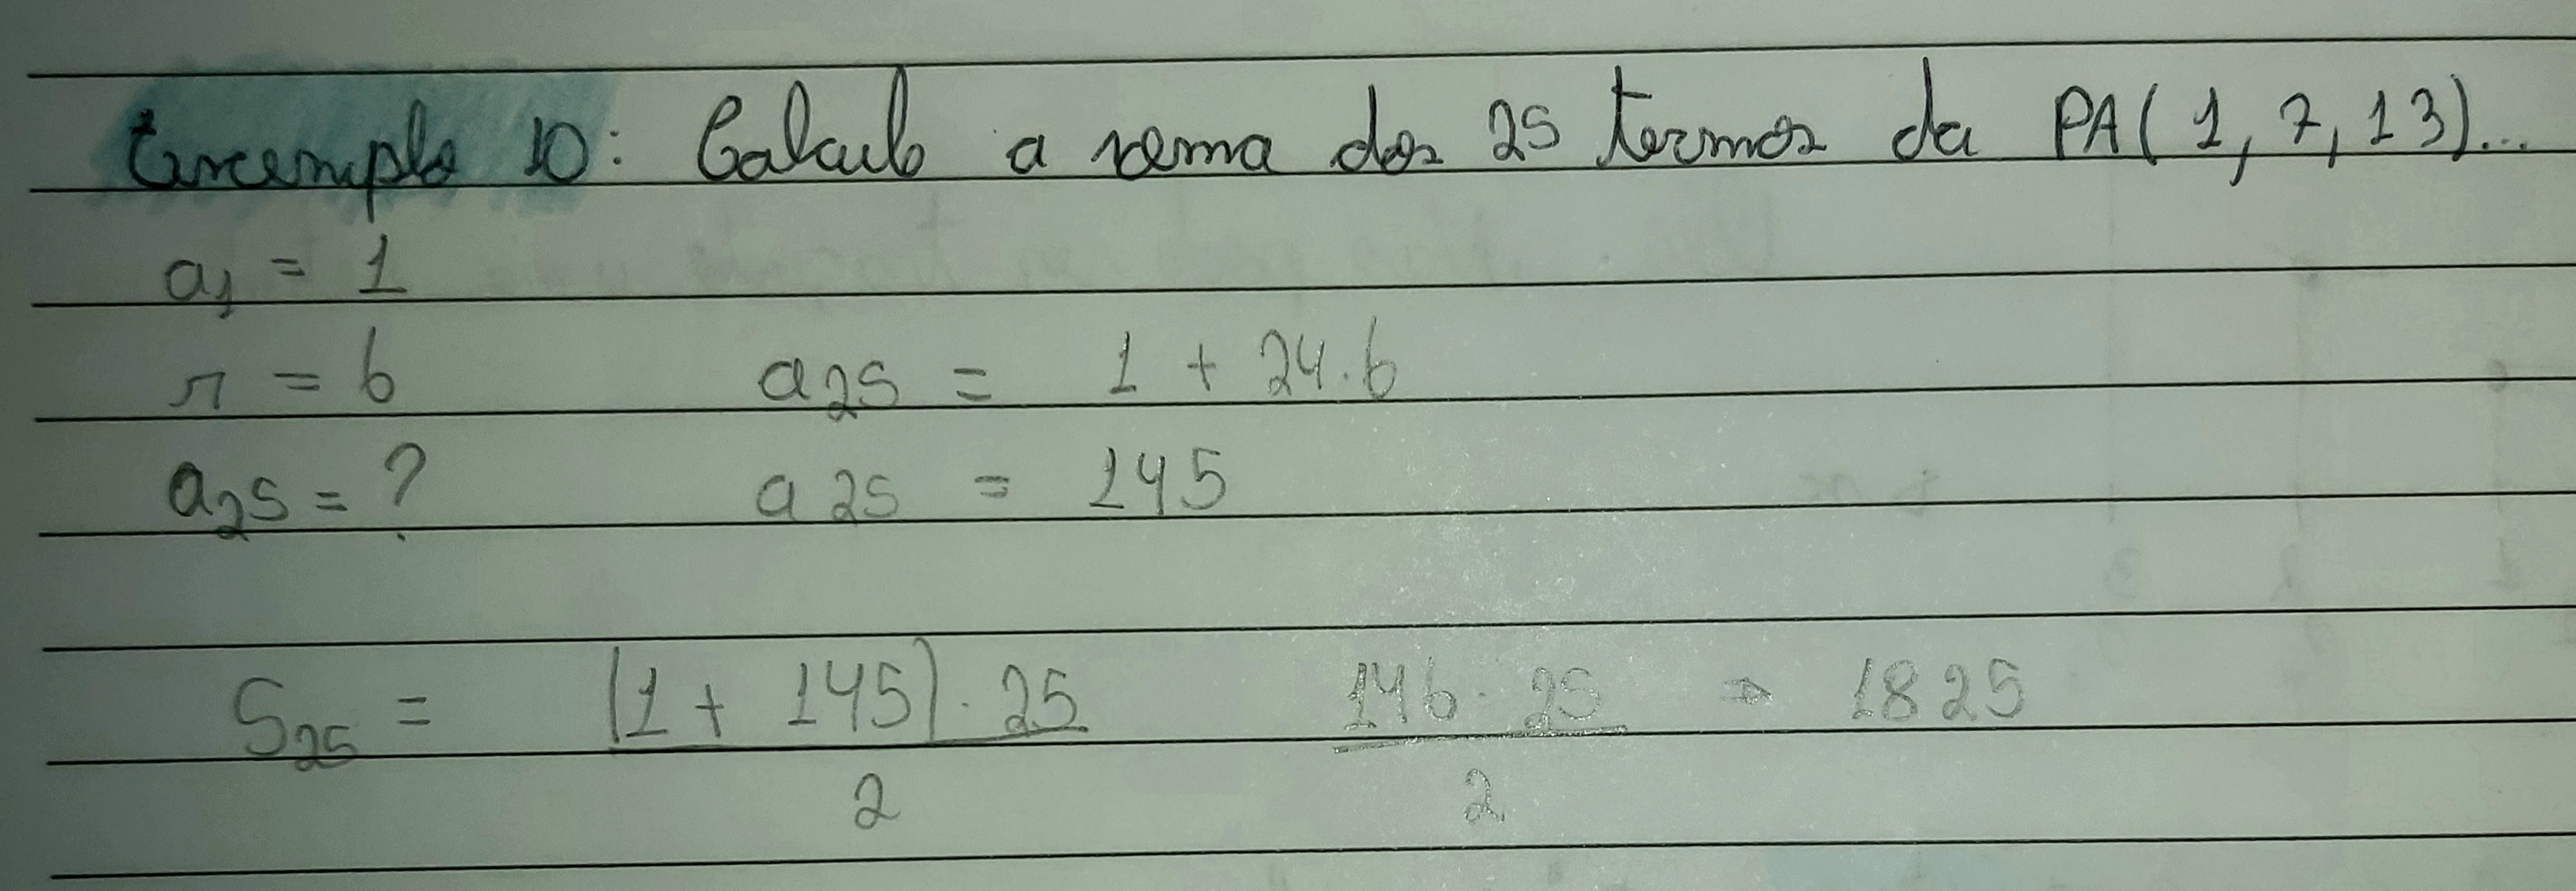 Exemplo 10: Calcule a soma dos 25 termos da PA(1, 7, 13)...
a₁ = 1
r = 6 a₂₅ = 1 + 24.6
a₂₅ = ? a₂₅ = 145
S₂₅ = (1 + 145) . 25 / 2 146 . 25 / 2 → 1825